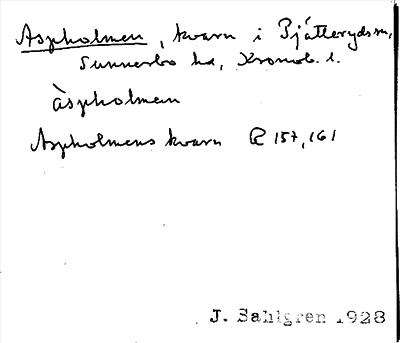 Aspholmen, kvarn i Pjätterydsm,
Sunnerbo hd, Kronob. l.
àspholmen
Aspholmens kvarn R 157, 161
J. Sahlgren 1928